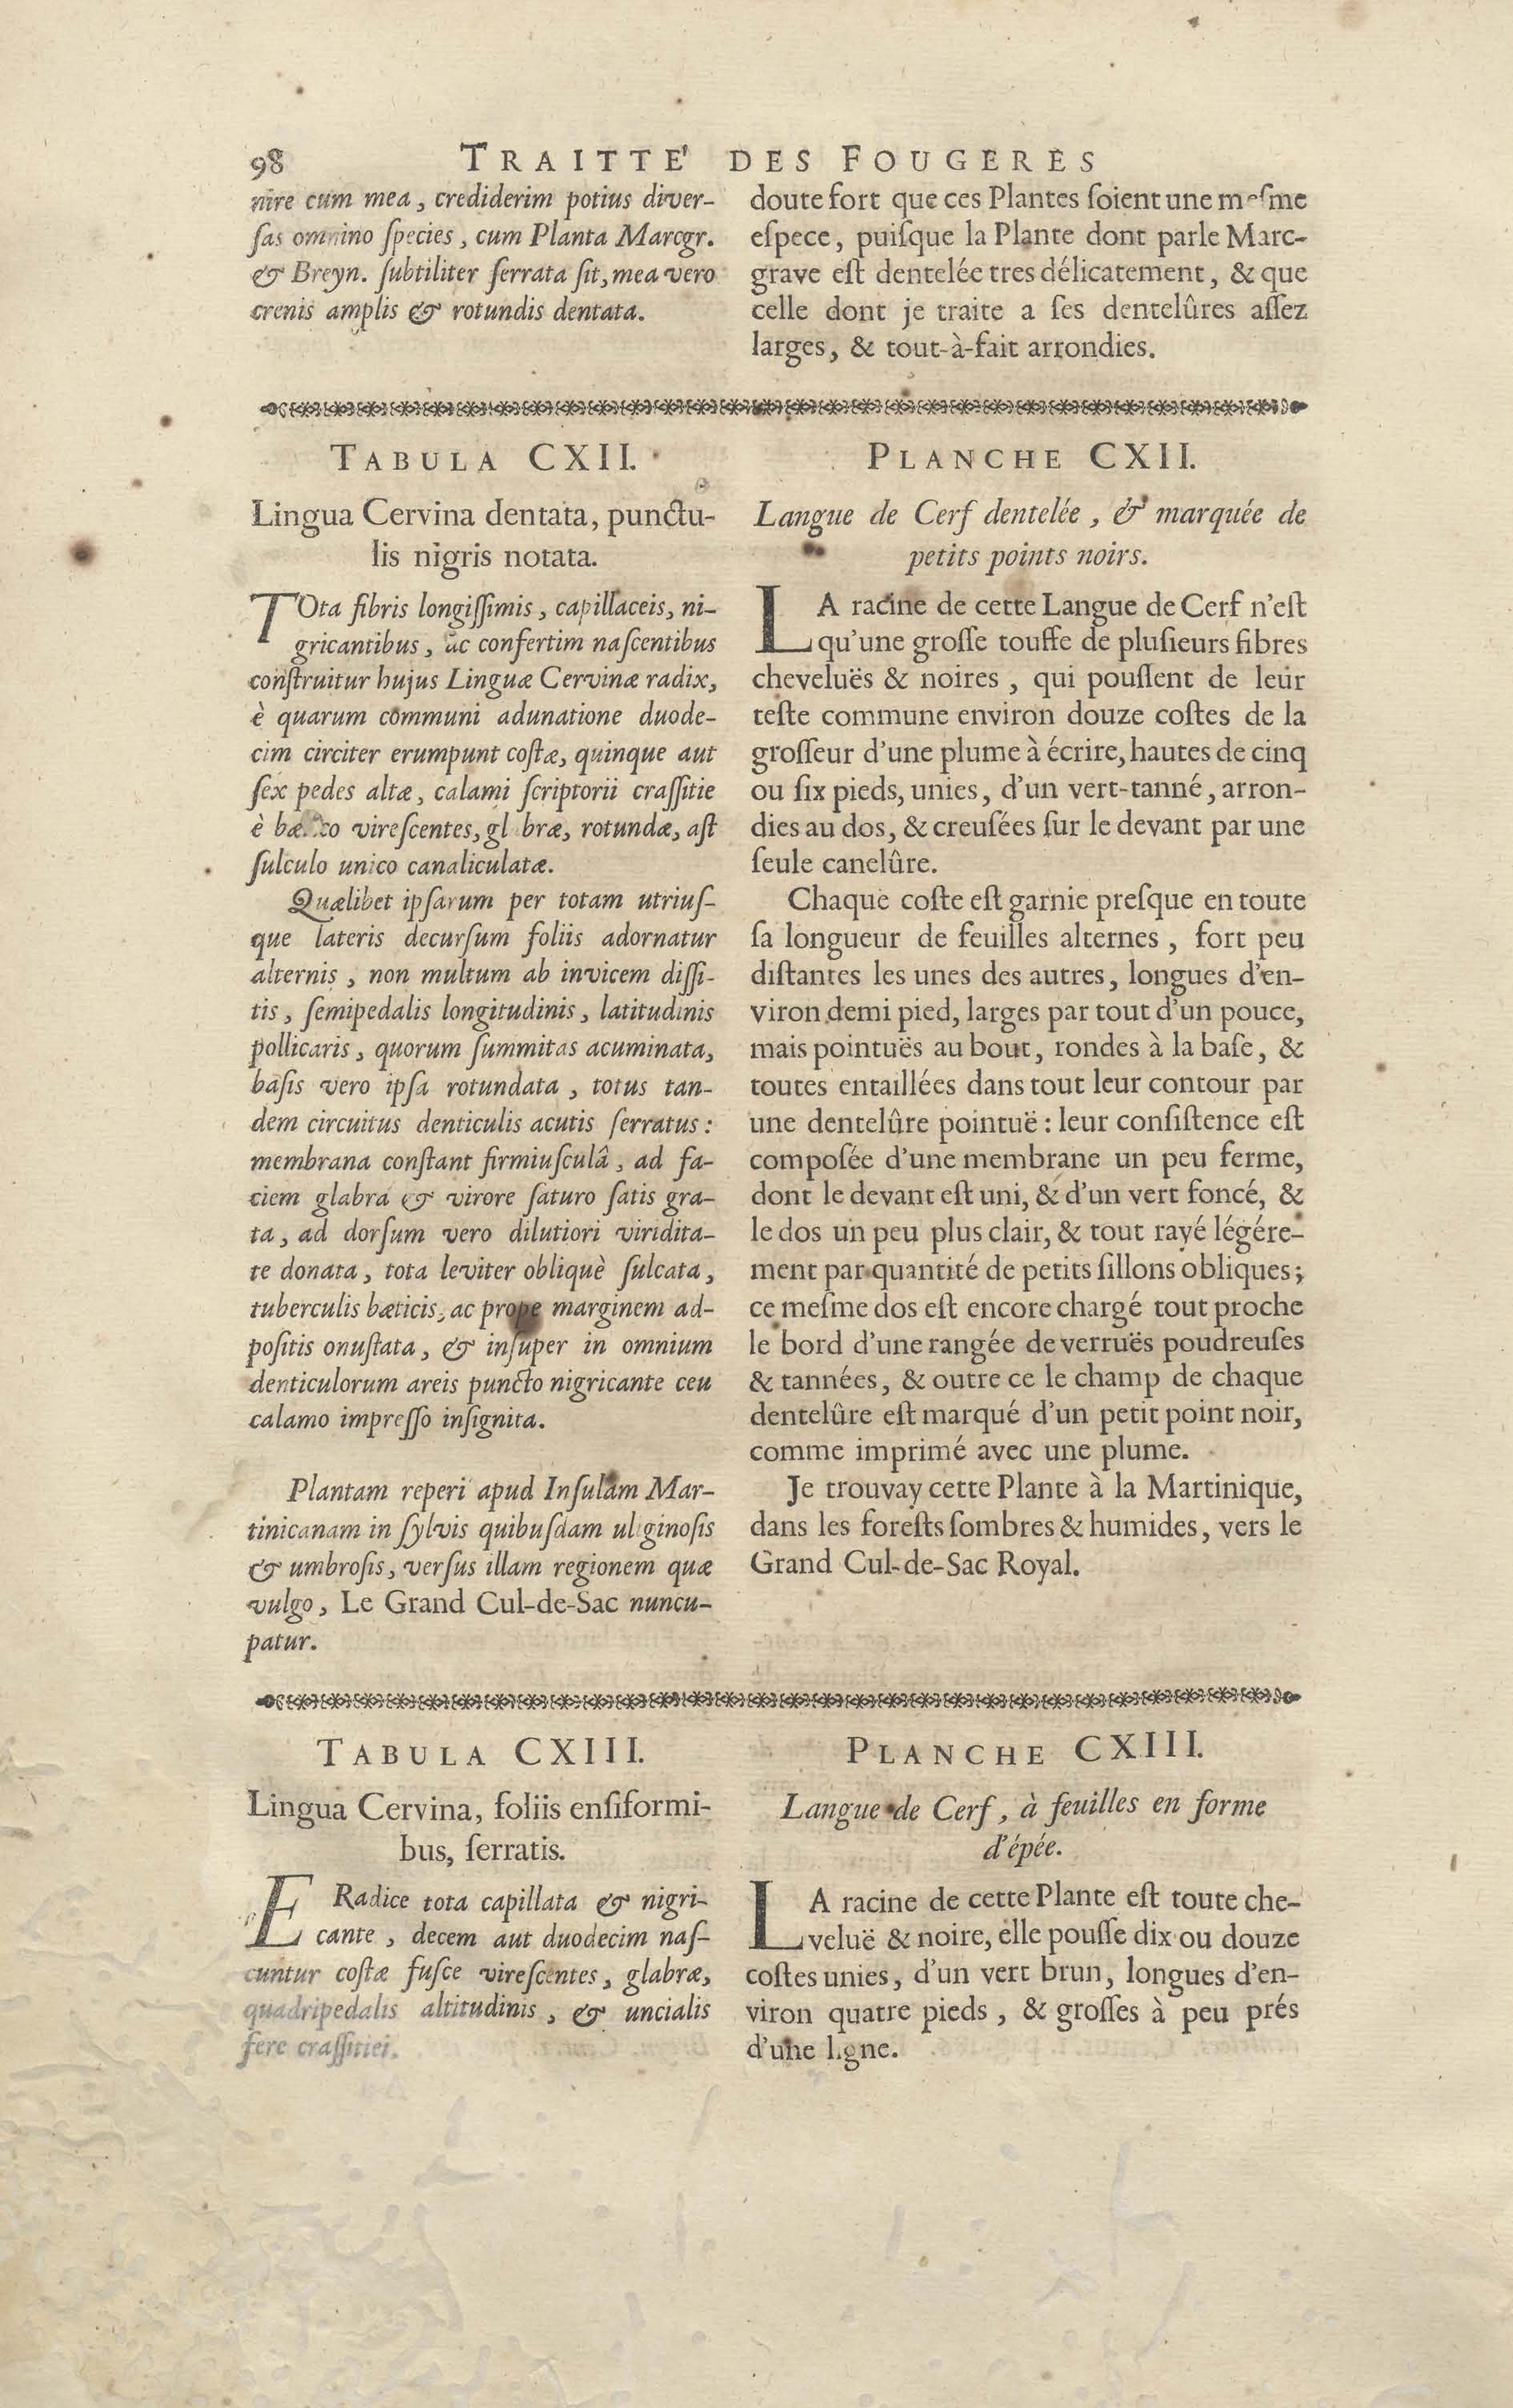 98 TRAITTE' DES FOUGERES
nire cum mea, crediderim potius diver-
ſas omnino ſpecies, cum Planta Marcgr.
& Breyn. ſubtiliter ſerrata ſit, mea vero
crenis amplis & rotundis dentata.
doute fort que ces Plantes ſoient une meſme
eſpece, puiſque la Plante dont parle Marc-
grave eſt dentelée tres délicatement, & que
celle dont je traite a ſes dentelûres aſſez
larges, & tout-à-fait arrondies.
TABULA CXII.
Lingua Cervina dentata, punctu-
lis nigris notata.
TOta fibris longiſſimis, capillaceis, ni-
gricantibus, ac confertim naſcentibus
conſtruitur hujus Linguæ Cervinæ radix,
è quarum communi adunatione duode-
cim circiter erumpunt coſtæ, quinque aut
ſex pedes altæ, calami ſcriptorii craſſitie
è bæ..co vireſcentes, gl bræ, rotundæ, aſt
ſulculo unico canaliculatæ.
Quælibet ipſarum per totam utriuſ-
que lateris decurſum foliis adornatur
alternis, non multum ab invicem diſſi-
tis, ſemipedalis longitudinis, latitudinis
pollicaris, quorum ſummitas acuminata,
baſis vero ipſa rotundata, totus tan-
dem circuitus denticulis acutis ſerratus:
membrana conſtant firmiuſculâ, ad fa-
ciem glabra & virore ſaturo ſatis gra-
ta, ad dorſum vero dilutiori viridita-
te donata, tota leviter obliquè ſulcata,
tuberculis bæticis, ac prope marginem ad-
poſitis onuſtata, & inſuper in omnium
denticulorum areis puncto nigricante ceu
calamo impreſſo inſignita.
Plantam reperi apud Inſulam Mar-
tinicanam in ſylvis quibuſdam uliginoſis
& umbroſis, verſus illam regionem quæ
vulgo, Le Grand Cul-de-Sac nuncu-
patur.
PLANCHE CXII.
Langue de Cerf dentelée, & marquée de
petits points noirs.
LA racine de cette Langue de Cerf n'eſt
qu'une groſſe touffe de pluſieurs fibres
cheveluës & noires, qui pouſſent de leur
teſte commune environ douze coſtes de la
groſſeur d'une plume à écrire, hautes de cinq
ou ſix pieds, unies, d'un vert-tanné, arron-
dies au dos, & creuſées ſur le devant par une
ſeule canelûre.
Chaque coſte eſt garnie preſque en toute
ſa longueur de feuilles alternes, fort peu
diſtantes les unes des autres, longues d'en-
viron demi pied, larges par tout d'un pouce,
mais pointuës au bout, rondes à la baſe, &
toutes entaillées dans tout leur contour par
une dentelûre pointuë: leur conſiſtence eſt
compoſée d'une membrane un peu ferme,
dont le devant eſt uni, & d'un vert foncé, &
le dos un peu plus clair, & tout rayé légére-
ment par quantité de petits ſillons obliques;
ce meſme dos eſt encore chargé tout proche
le bord d'une rangée de verruës poudreuſes
& tannées, & outre ce le champ de chaque
dentelûre eſt marqué d'un petit point noir,
comme imprimé avec une plume.
Je trouvay cette Plante à la Martinique,
dans les foreſts ſombres & humides, vers le
Grand Cul-de-Sac Royal.
TABULA CXIII.
Lingua Cervina, foliis enſiformi-
bus, ſerratis.
E Radice tota capillata & nigri-
cante, decem aut duodecim naſ-
cuntur coſtæ fuſce vireſcentes, glabræ,
quadripedalis altitudinis, & uncialis
fere craſſitiei.
PLANCHE CXIII.
Langue de Cerf, à feuilles en forme
d'épée.
LA racine de cette Plante eſt toute che-
veluë & noire, elle pouſſe dix ou douze
coſtes unies, d'un vert brun, longues d'en-
viron quatre pieds, & groſſes à peu prés
d'une ligne.